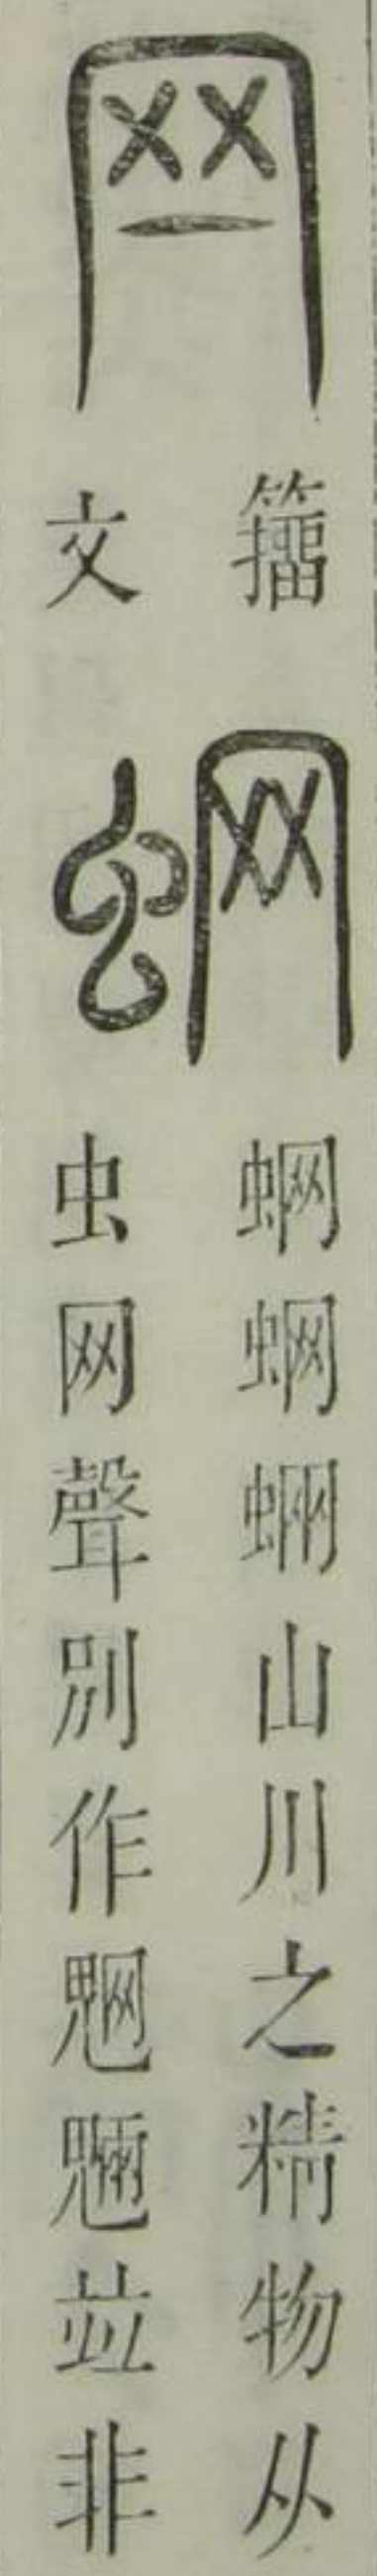 籀文
蛧蛧蜽山川之精物从
虫网聲別作魍魎竝非